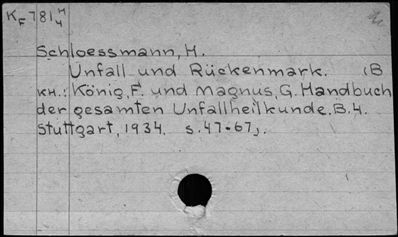 KF781 H/4
Schloessmann, H.
Unfall und Rückenmark. (В
кн.: König, F. und Magnus, G. Handbuch
der gesamten Unfallheilkunde. B. 4.
Stuttgart, 1934. s. 47-67).